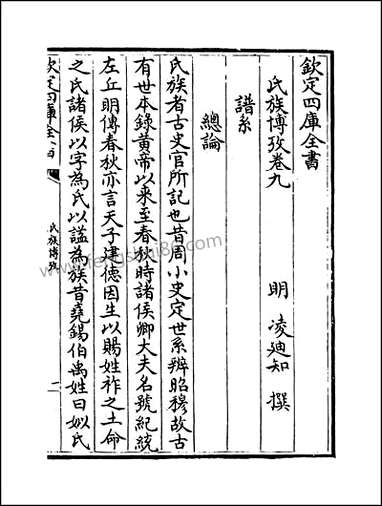 欽定四庫全書
氏族博攷卷九
明 凌迪知 撰
譜系
總論
氏族者古史官所記也昔周小史定世系辨昭穆故古
有世本録黄帝以來至春秋時諸侯卿大夫名號紀統
左丘明傳春秋亦言天子建德因生以賜姓祚之土命
之氏諸侯以字為氏以諡為族昔堯錫伯禹姓曰姒氏
欽定四庫全書
氏族博攷
一